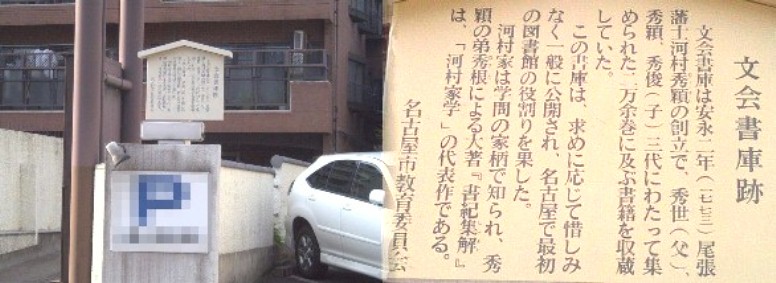 文会書庫跡
文会書庫は安永二年（一七七三）尾張
藩士河村秀穎の創立で、秀世（父）、
秀穎、秀俊（子）三代にわたって集
められた二万余巻に及ぶ書籍を収蔵
していた。
この書庫は、求めに応じて惜しみ
なく一般に公開され、名古屋で最初
の図書館の役割りを果した。
河村家は学問の家柄で知られ、秀
穎の弟秀根による大著『書紀集解』
は、「河村家学」の代表作である。
名古屋市教育委員会
P